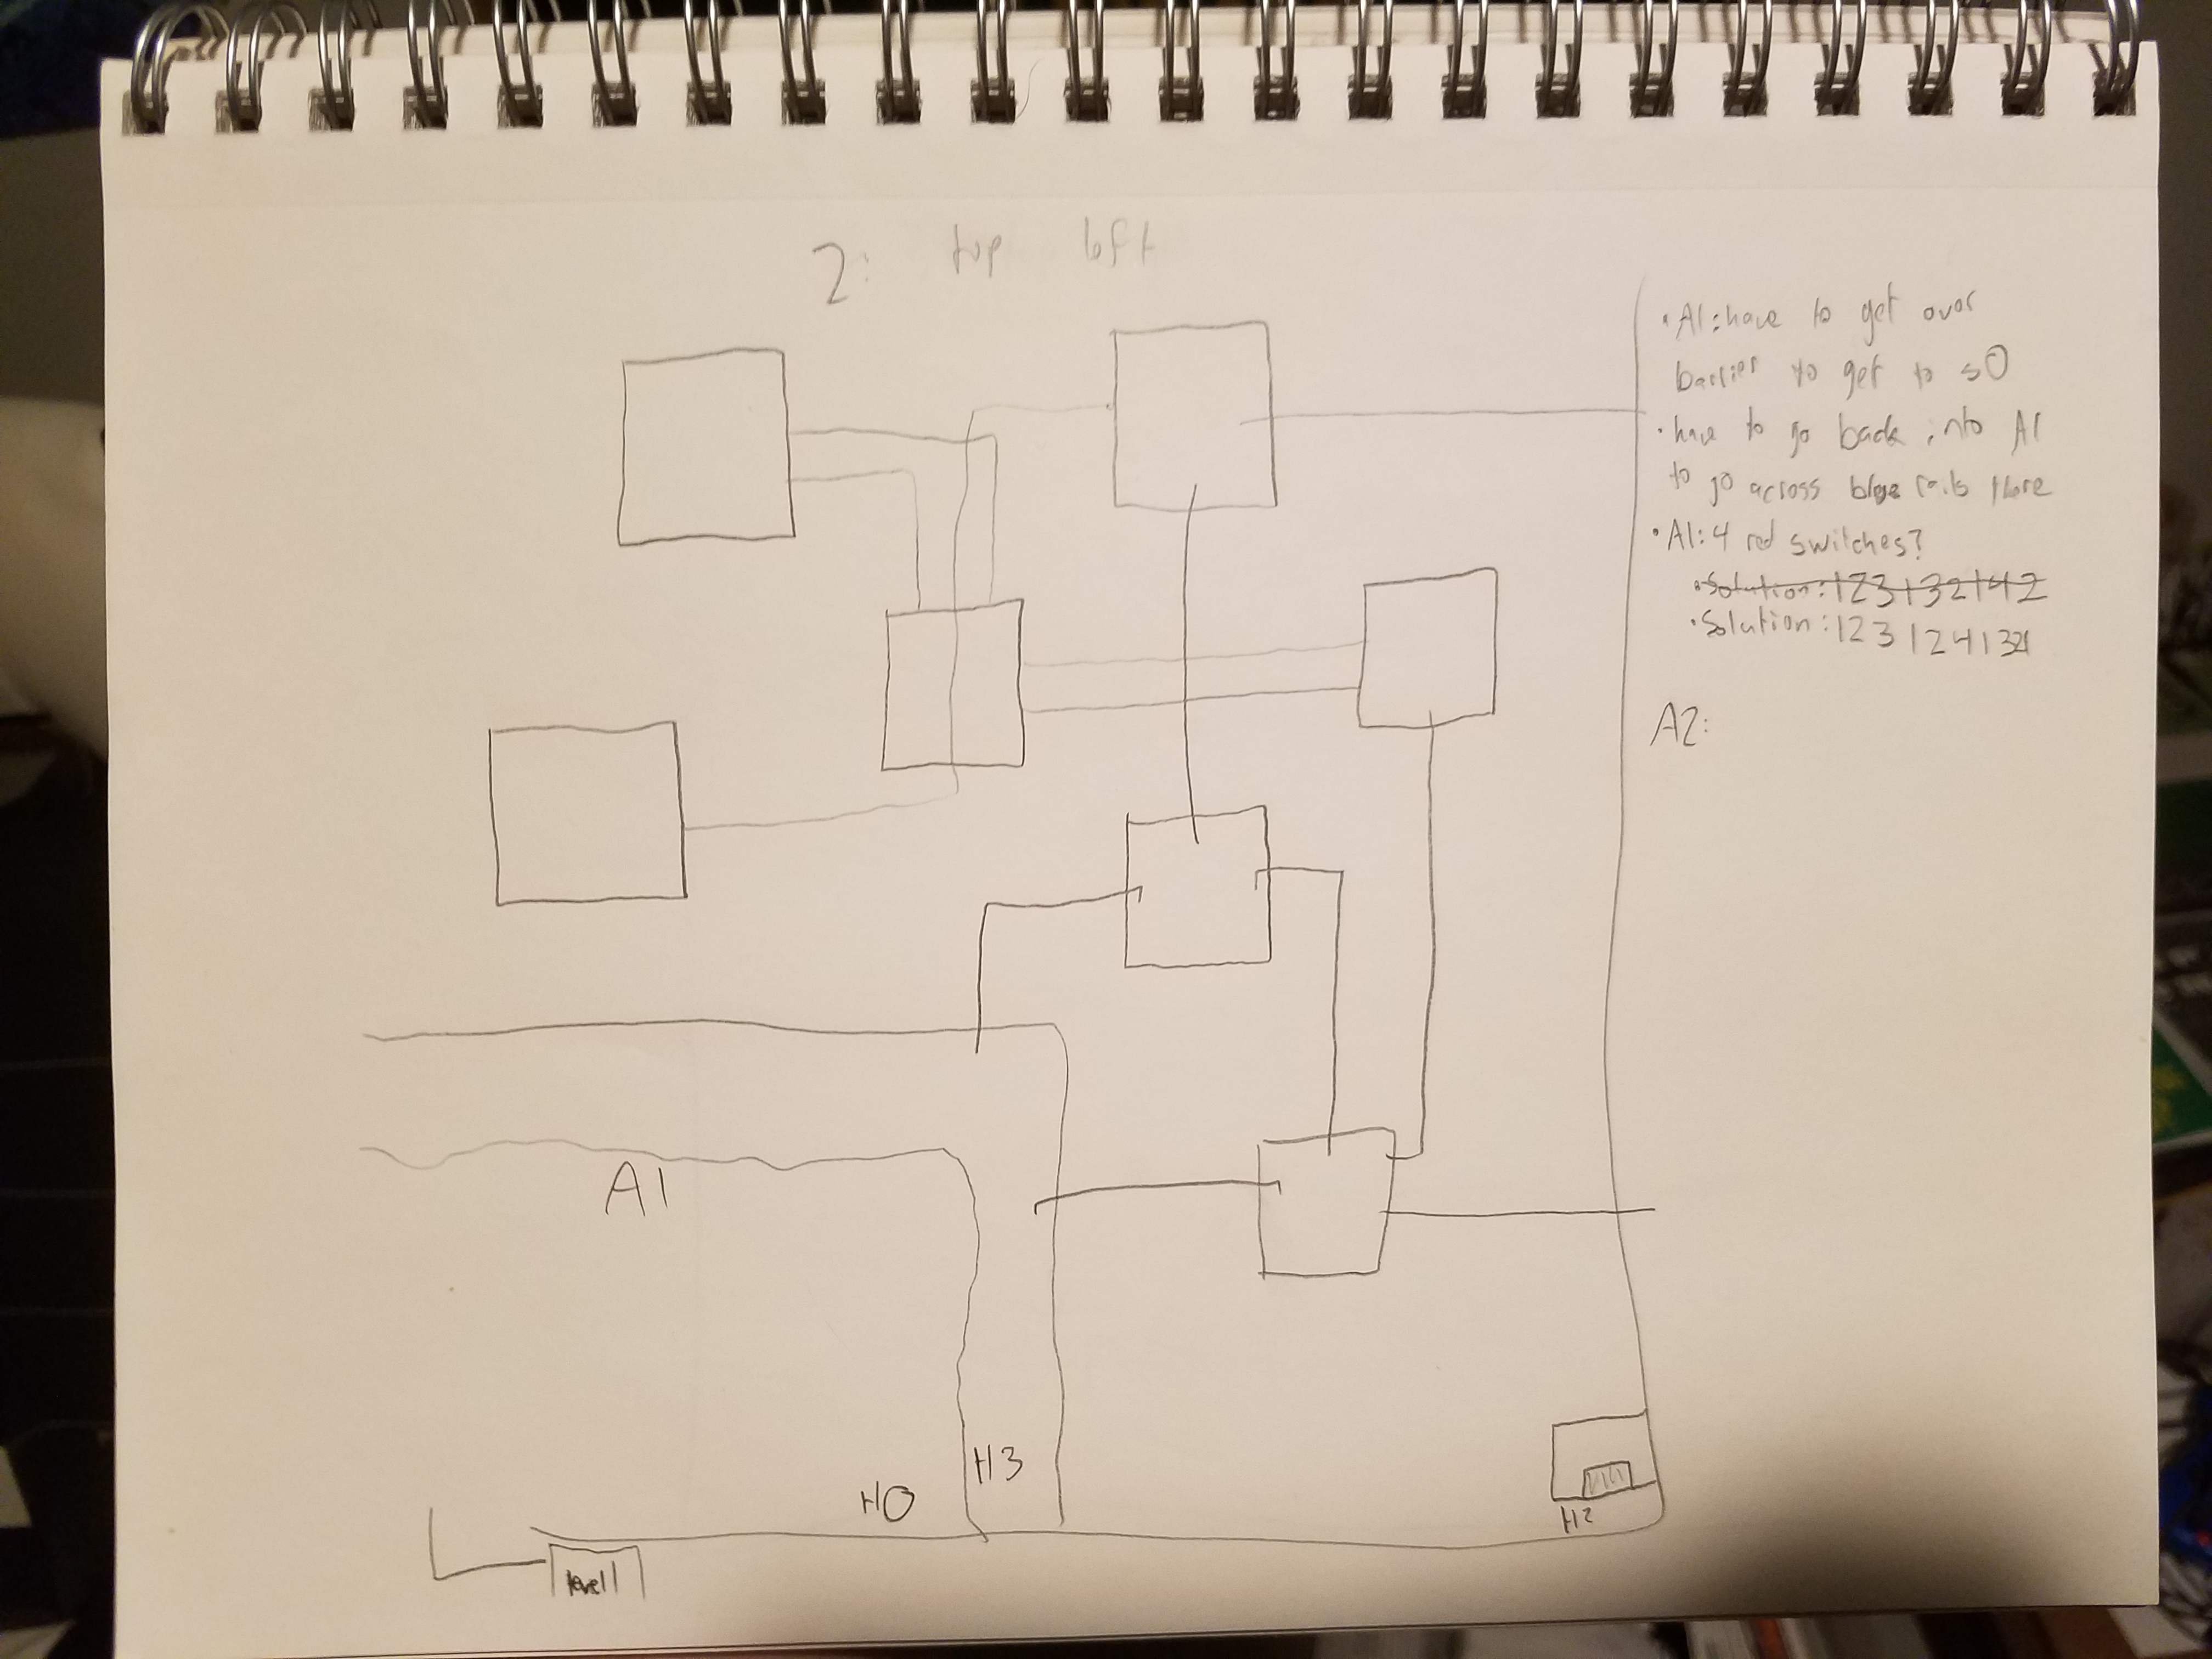 2: top left
• A1: have to get over
barrier to get to s0
• have to go back into A1
to go across blge rails there
• A1: 4 red switches?
• Solution: 123132142
• Solution: 1231241321
A2:
A1
H3
H0
H2
level 1